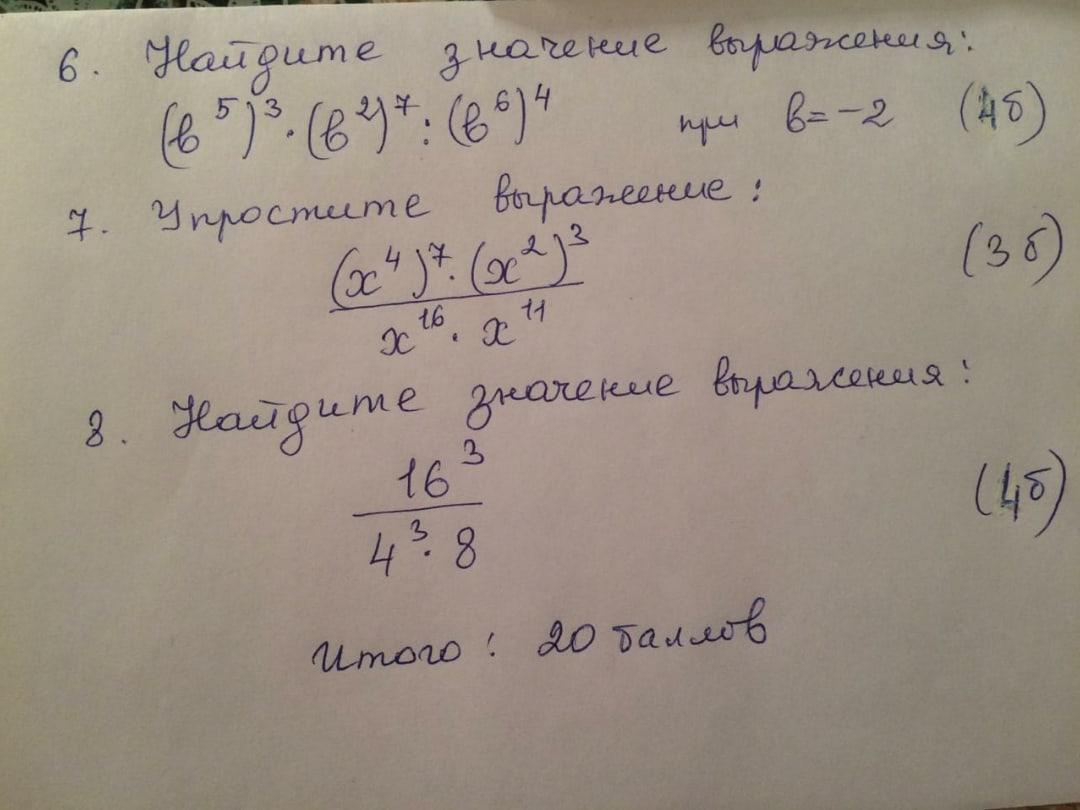 6. Найдите значение выражения:
(в⁵)³·(в²)⁷:(в⁶)⁴ при в=-2 (4б)
7. Упростите выражение:
(x⁴)⁷·(x²)³ (3б)
x¹⁶·x¹¹
8. Найдите значение выражения:
16³ (4б)
4³·8
Итого: 20 баллов